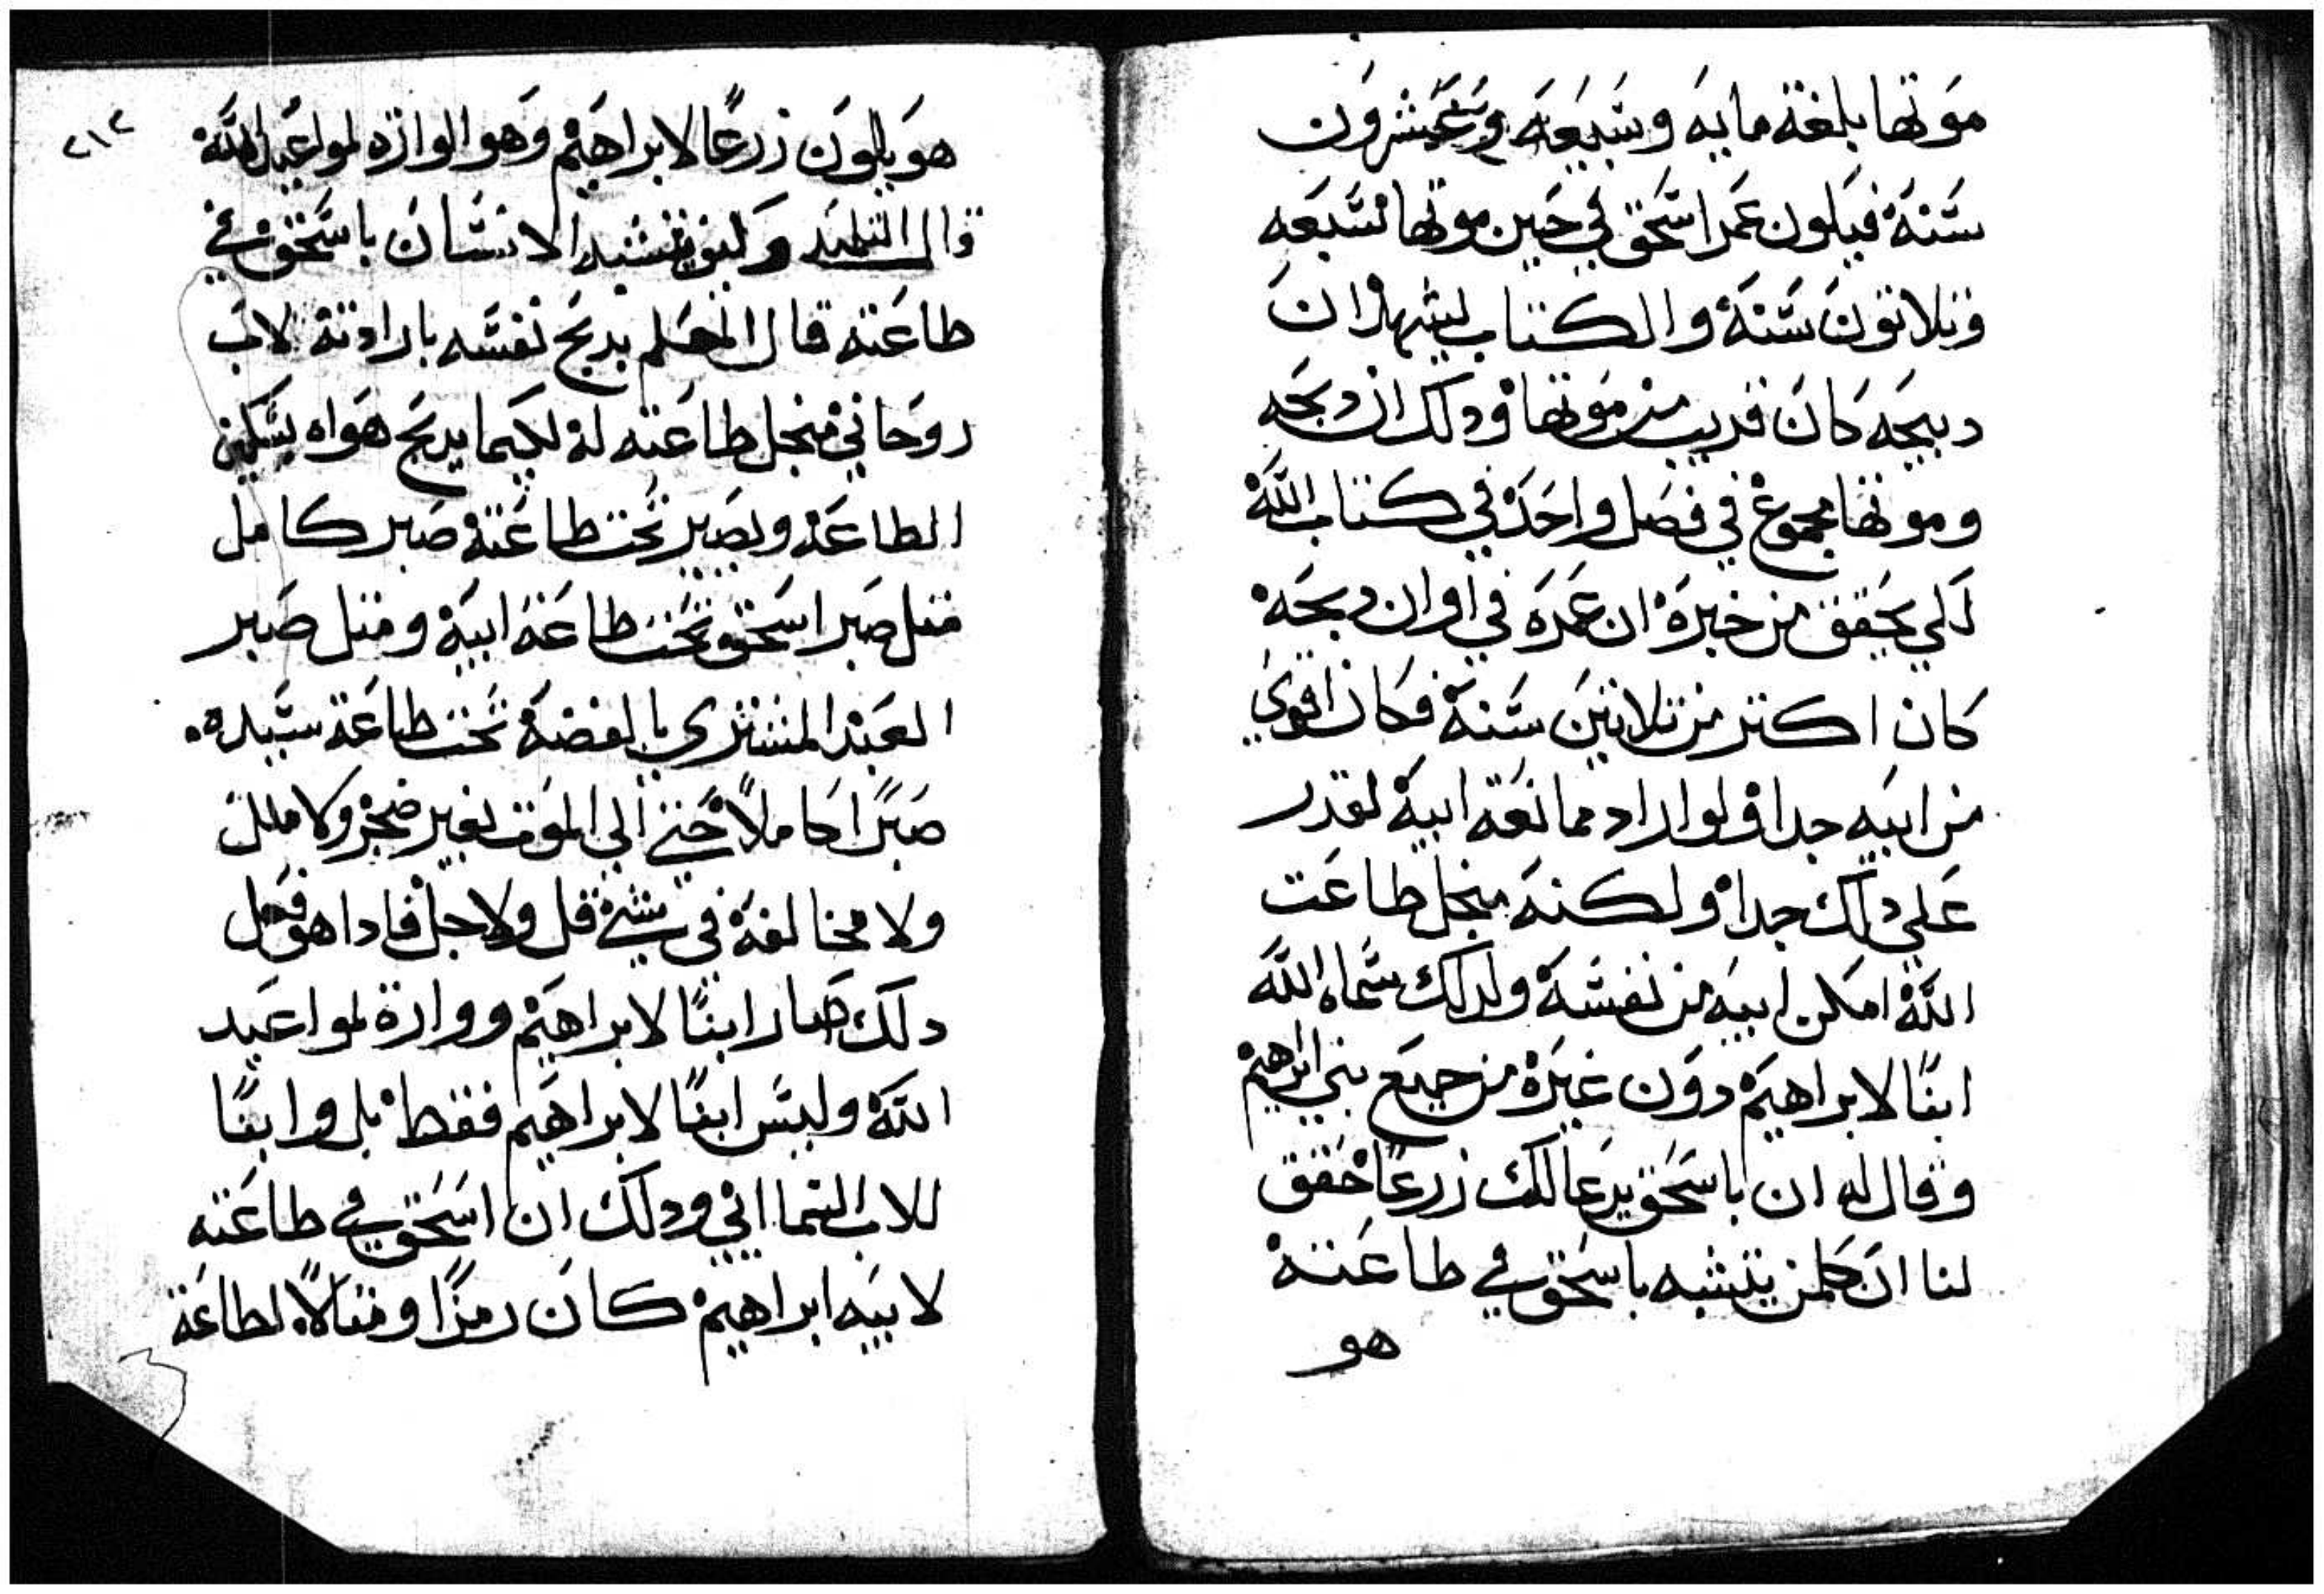 موتها بلغة مايه وسبعه وعشرون
سنة فيكون عمر اسحق في حين موتها سبعه
وتلاتون سنة والكتاب يشهد ان
دبيحه كان قريب من موتها ودلك ان دبحه
وموتها مجموع في فصل واحد في كتاب الله
لكي يحقق من خبره ان عمره في اوان دبحه
كان اكتر من تلاتين سنة فكان اقوي
من ابيه جدا ولو اراد ممانعة ابيه لقدر
علي دلك جدا ولكنه منجل طاعت
الله امكن ابيه من نفسه ولدلك سماه الله
ابنًا لابراهيم دون غيره من جميع بني ابراهيم
وقال له ان باسحق يدعا لك زرعًا حقق
لنا ان كلمن يتشبه باسحق في طاعته
هو
٢١٢
هو يكون زرعًا لابراهيم وهو الوارت لمواعيد الله
قال التلميد وكيف يتشبه الانسان باسحق في
طاعته قال المعلم يدبح نفسه بارادته لاب
روحاني منجل طاعته له لكيما يدبح هواه بسكين
الطاعه ويصير تحت طاعته صبر كامل
متل صبر اسحق تحت طاعة ابيه ومتل صبر
العبد المشتري بالفضه تحت طاعة سيده
صبرًا كاملاً حتي الي الموت بغير ضجر ولا ملل
ولا مخالفة في شي قل ولا جل فادا هو فعل
دلك صار ابنًا لابراهيم ووارت لمواعيد
الله وليس ابنًا لابراهيم فقط بل وابنًا
للاب السمااني ودلك ان اسحق في طاعته
لابيه ابراهيم كان رمزًا ومتالاً لطاعة